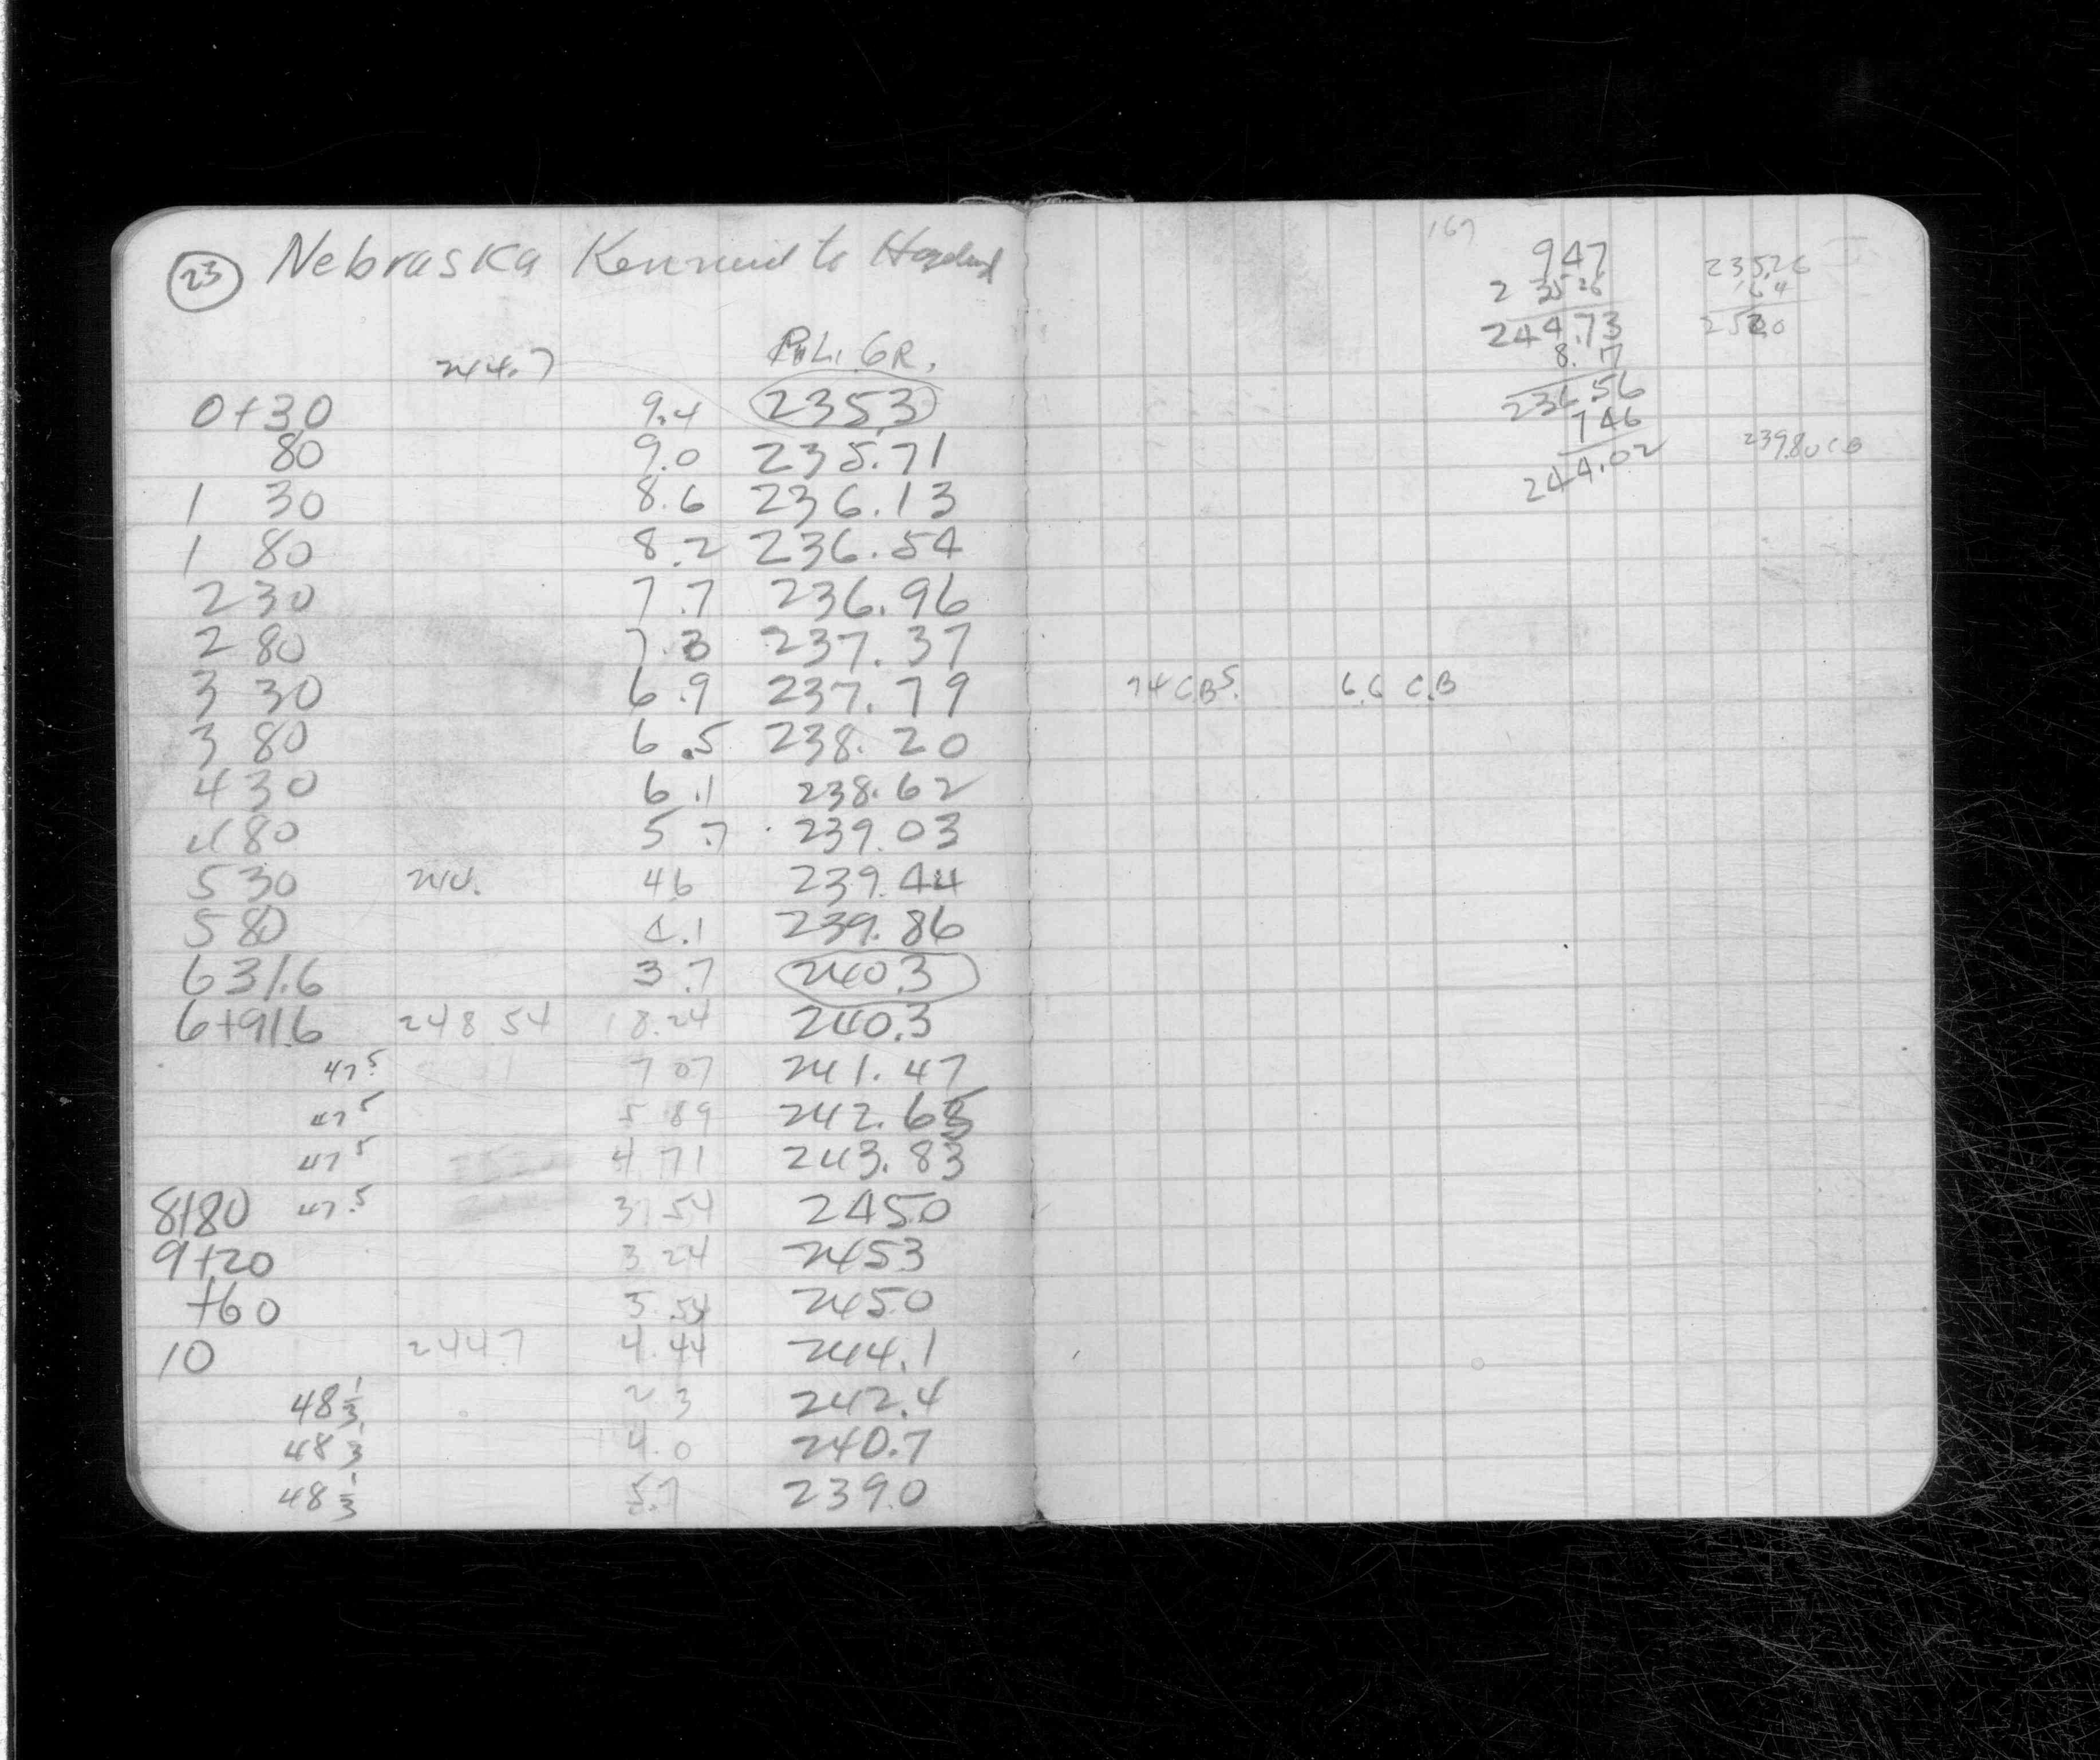 23 Nebraska Kenwood to Hazelwood
244.7 P.L. GR.
0+30 9.4 235.3
80 9.0 235.71
1 30 8.6 236.13
1 80 8.2 236.54
2 30 7.7 236.96
2 80 7.3 237.37
3 30 6.9 237.79
3 80 6.5 238.20
4 30 6.1 238.62
4 80 5.7 239.03
5 30 244. 46 239.44
5 80 4.1 239.86
6 31.6 3.7 240.3
6+91.6 248 54 8.24 240.3
47.5 7 07 241.47
47 5 5 89 242.65
47 5 4 71 243.83
8+80 47.5 3 54 245.0
9+20 3 24 2453
+60 3.54 245.0
10 244 7 4.44 244.1
48 1/3 2 3 242.4
48 1/3 4.0 240.7
48 1/3 5.7 239.0
167
947
2 35 26
244.73
8.17
236 56
746
244.02
235.26
2520
239.80 CB
74 CBS. 6.6 C.B